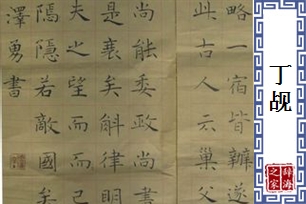 略一宿皆辦遂
此古人云巢父
尚能委政尚書
是衰矣斛律明
夫之望而已
隔隱若敵國矣
澤勇書
丁觇
辭海之家